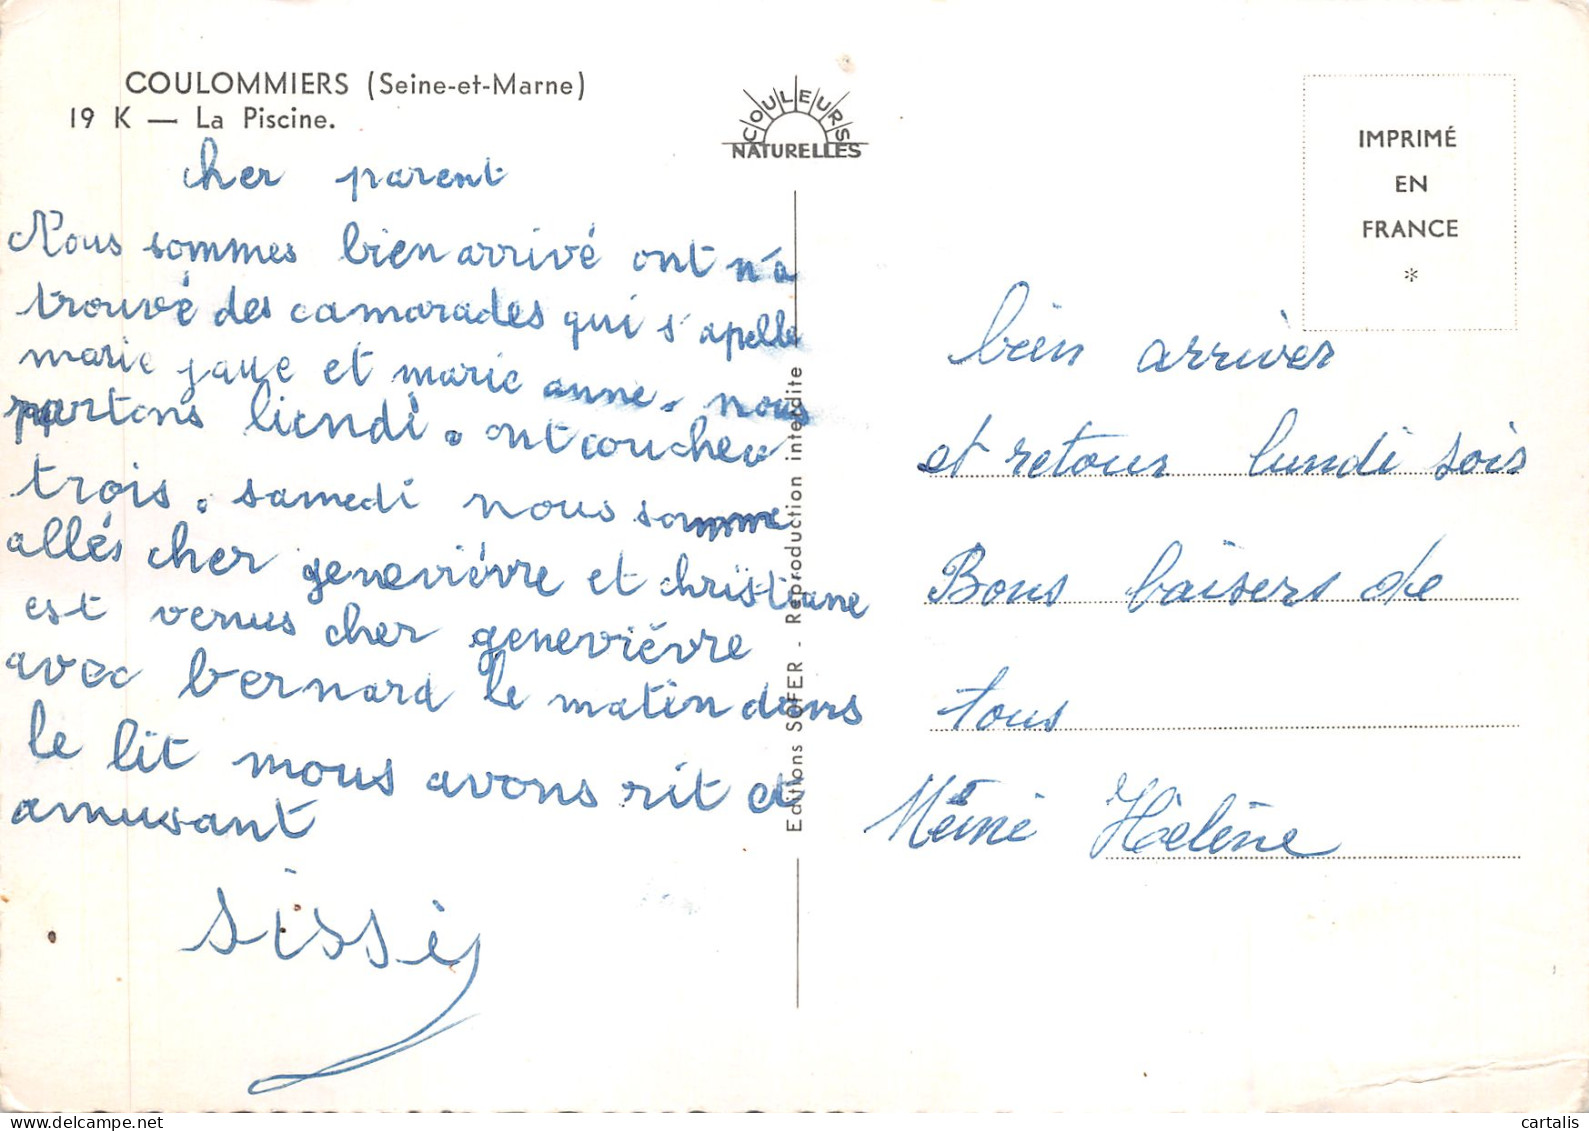 COULOMMIERS (Seine-et-Marne)
19 K — La Piscine.
COULEURS
NATURELLES
IMPRIMÉ
EN
FRANCE
*
cher parent
Nous sommes bien arrivé ont n'a
trouvé des camarades qui s'apelle
marie jaue et marie anne. nous
partons liendi. ont couchev
trois. samedi nous somme
allés cher geneviévre et christiane
est venus cher geneviévre
avec bernard le matin dans
le lit mous avons rit et
amusant
sissi
Editions SOFER - Reproduction interdite
bien arriver
et retour lundi sois
Bons baisers de
tous
Mémé Hélène
cartalis